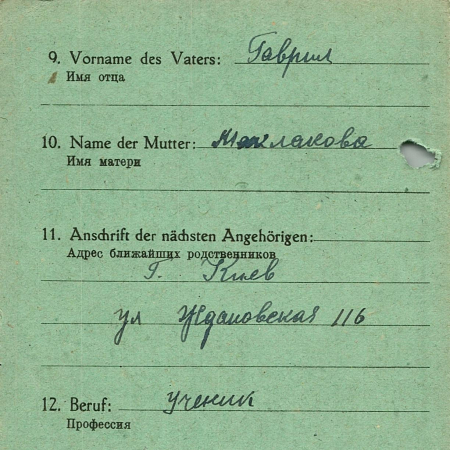 9. Vorname des Vaters: Гаврил
Имя отца
10. Name der Mutter: Маклакова
Имя матери
11. Anschrift der nächsten Angehörigen:
Адрес ближайших родственников
Г. Киев
ул Ждановская 116
12. Beruf: ученик
Профессия